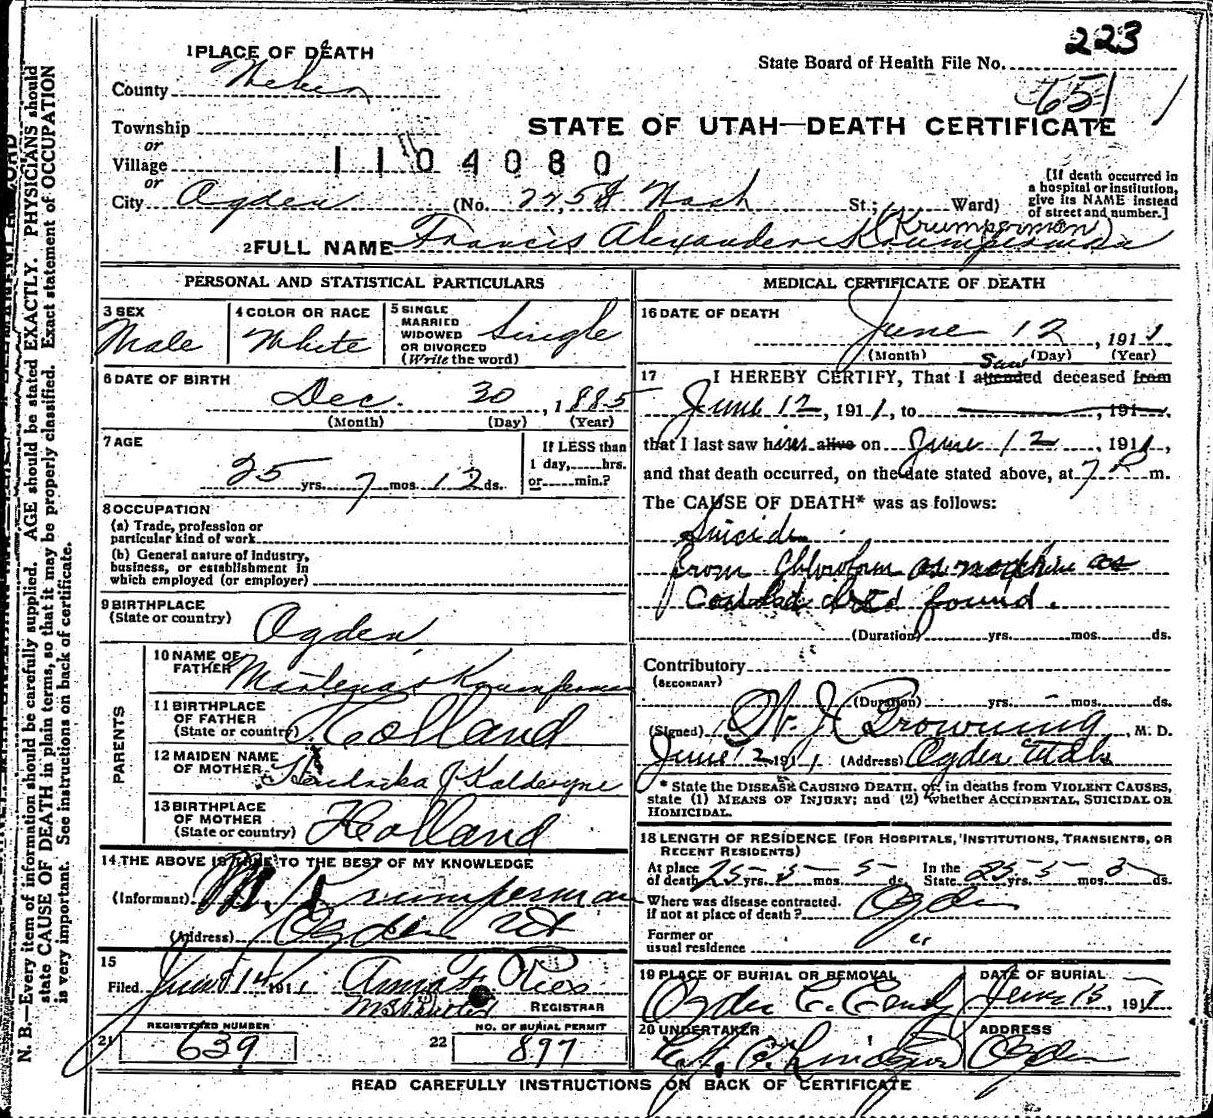 223
1 PLACE OF DEATH
State Board of Health File No.
County Weber
651
Township
STATE OF UTAH—DEATH CERTIFICATE
or
Village
1104080
or
[If death occurred in a hospital or institution, give its NAME instead of street and number.]
City Ogden (No. Wash St.; Ward)
(Krumperman)
2 FULL NAME Francis Alexander Krumperman
PERSONAL AND STATISTICAL PARTICULARS
3 SEX
Male
4 COLOR OR RACE
White
5 SINGLE
MARRIED
WIDOWED
OR DIVORCED
(Write the word)
Single
6 DATE OF BIRTH
Dec. 30, 1885
(Month) (Day) (Year)
7 AGE
25 yrs. 7 mos. 12 ds.
If LESS than
1 day, hrs.
or min.?
8 OCCUPATION
(a) Trade, profession or
particular kind of work
(b) General nature of industry,
business, or establishment in
which employed (or employer)
9 BIRTHPLACE
(State or country) Ogden
PARENTS
10 NAME OF
FATHER Krumperman
11 BIRTHPLACE
OF FATHER
(State or country) Holland
12 MAIDEN NAME
OF MOTHER Hendrika J
13 BIRTHPLACE
OF MOTHER
(State or country) Holland
14 THE ABOVE IS TRUE TO THE BEST OF MY KNOWLEDGE
(Informant) M. Krumperman
(Address) Ogden Ut
15
Filed June 14 1911 Anna F.
REGISTRAR
REGISTERED NUMBER
21 639
NO. OF BURIAL PERMIT
22 897
MEDICAL CERTIFICATE OF DEATH
16 DATE OF DEATH
June 12, 1911
(Month) (Day) (Year)
17 I HEREBY CERTIFY, That I attended saw deceased from
June 12, 1911, to , 191
that I last saw him alive on June 12, 1911,
and that death occurred, on the date stated above, at 7 m.
The CAUSE OF DEATH* was as follows:
Suicide
from Chloroform or morphine as
found.
(Duration) yrs. mos. ds.
Contributory
(SECONDARY)
(Duration) yrs. mos. ds.
(Signed) Browning, M. D.
June 12 1911 (Address) Ogden Utah
* State the DISEASE CAUSING DEATH, or, in deaths from VIOLENT CAUSES,
state (1) MEANS OF INJURY; and (2) whether ACCIDENTAL, SUICIDAL OR
HOMICIDAL.
18 LENGTH OF RESIDENCE (FOR HOSPITALS, INSTITUTIONS, TRANSIENTS, OR
RECENT RESIDENTS)
At place
of death 25 yrs. 5 mos. 5 ds. In the
State 25 yrs. 5 mos. ds.
Where was disease contracted.
if not at place of death? Ogden
Former or
usual residence "
19 PLACE OF BURIAL OR REMOVAL
Ogden
DATE OF BURIAL
June 13, 1911
20 UNDERTAKER
ADDRESS
Ogden
READ CAREFULLY INSTRUCTIONS ON BACK OF CERTIFICATE
N. B.—Every item of information should be carefully supplied. AGE should be stated EXACTLY. PHYSICIANS should
state CAUSE OF DEATH in plain terms, so that it may be properly classified. Exact statement of OCCUPATION
is very important. See instructions on back of certificate.